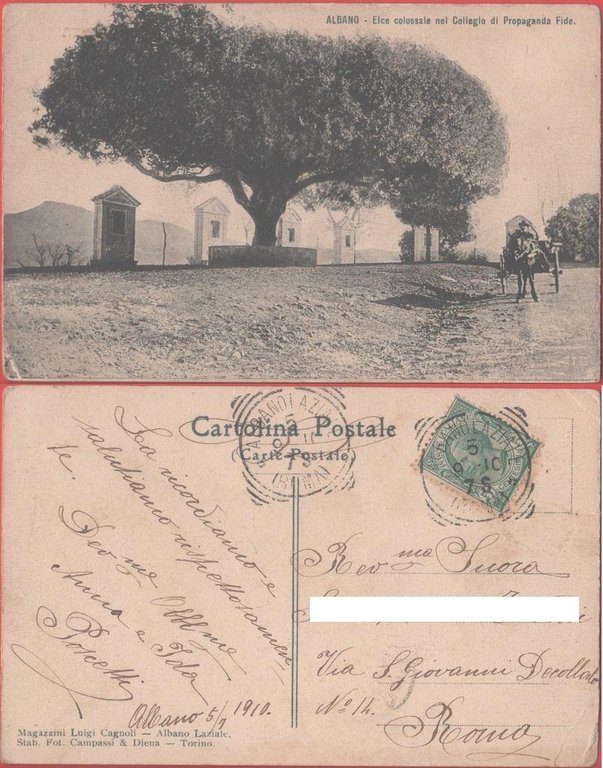 ALBANO - Elce colossale nel Collegio di Propaganda Fide.
Cartolina Postale
(Carte Postale)
ALBANO LAZIALE
5
7 S
ALBANO LAZIALE
5
7 S
La ricordiamo e
salutiamo rispettosamen
te.
Dev.me Obb.me
Anna e Ida
Porcetti
Albano 5/7 1910.
Rev ma Suora
Via S. Giovanni Decollato
No 14.
Roma
Magazzini Luigi Cagnoli — Albano Laziale.
Stab. Fot. Campassi & Diena — Torino.